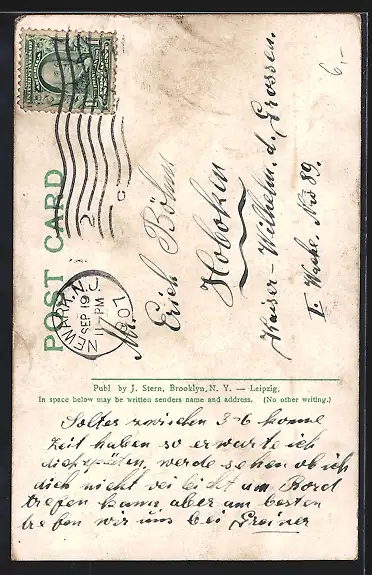 POST CARD
NEWARK, N.J.
SEP 19
11 PM
1907
2
Mr.
Erich Böhm
Hobokin
Kaiser-Wilhelm. d. Grossen.
I. Wache. Nro 89.
6,-
Publ by J. Stern, Brooklyn, N. Y. — Leipzig.
In space below may be written senders name and address. (No other writing.)
Soltes zwischen 3-6 komme
Zeit haben so erwarte ich
dich werde sehen ob ich
dich nicht vei leicht am Bord
trefen kann aber am besten
trefen wir uns bei Greiner